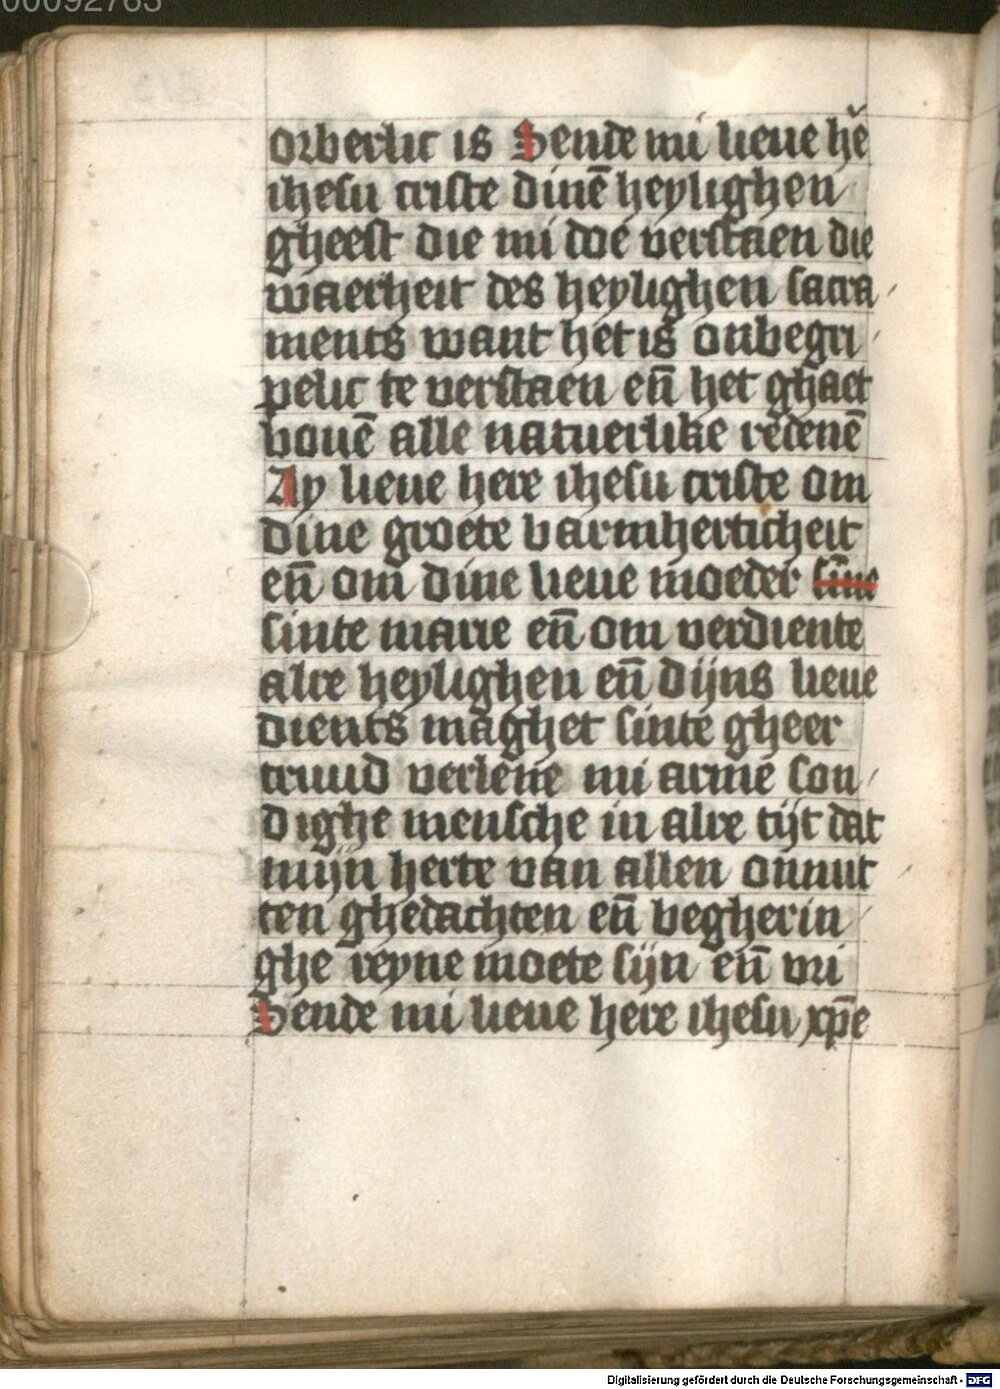 00092763
orberlic is Sende mi lieue hē
ihesu criste dinē heylighen
gheest die mi doe verstaen die
waerheit des heylighen sacra
ments want het is onbegri
pelic te verstaen eñ het ghaet
bouē alle natuerlike redenē
Ay lieue here ihesu criste om
dine groete barmherticheit
eñ om dine lieue moeder
sinte marie eñ om verdiente
alre heylighen eñ dijns lieue
dients maghet sinte gheer
truud verlene mi arme son
dighe mensche in alre tijt dat
mijn herte van allen onnut
ten ghedachten eñ begherin
ghe reyne moete sijn eñ vri
Sende mi lieue here ihesu xp̄e
Digitalisierung gefördert durch die Deutsche Forschungsgemeinschaft - DFG